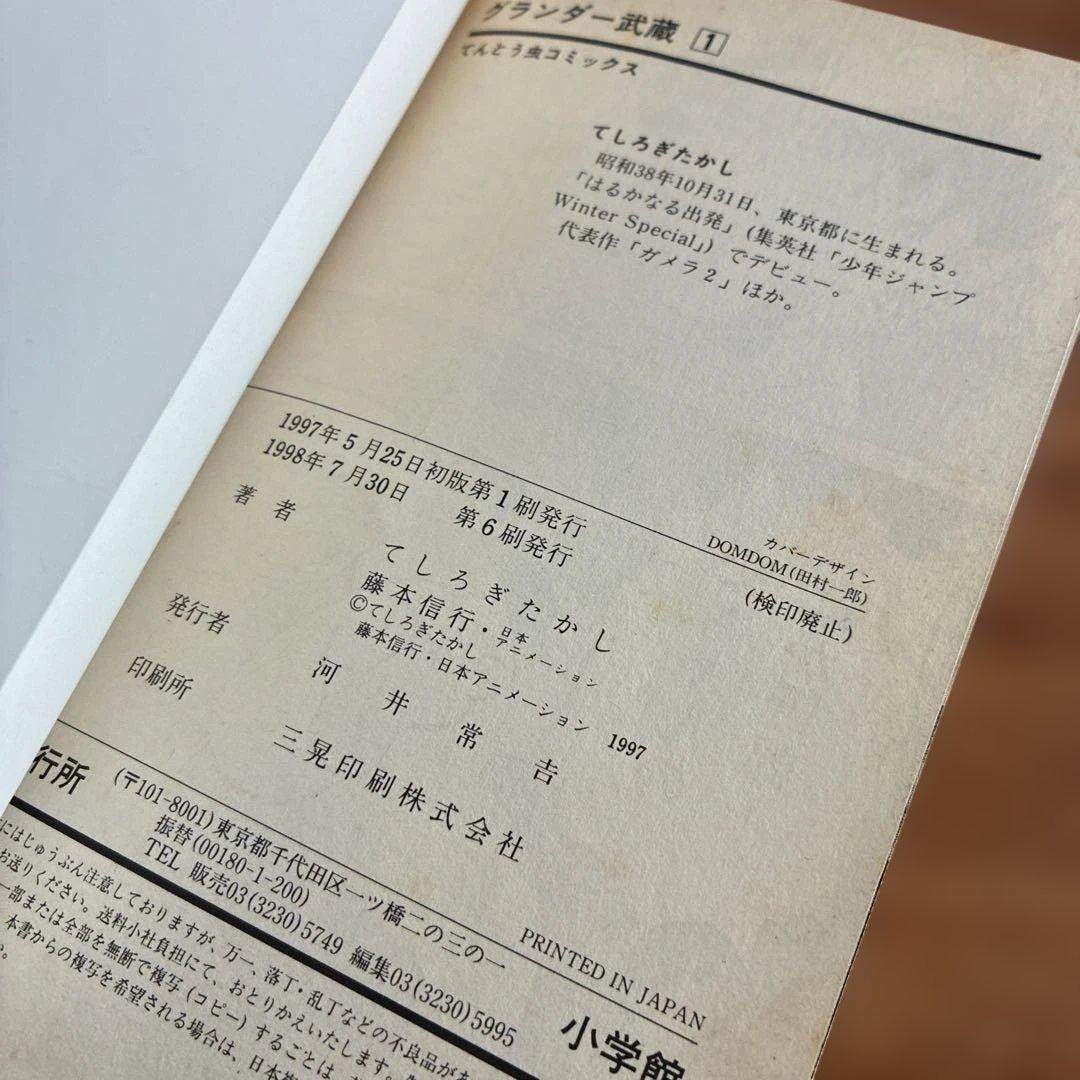 グランダー武蔵 1
てんとう虫コミックス
てしろぎたかし
昭和38年10月31日、東京都に生まれる。
「はるかなる出発」(集英社「少年ジャンプ
Winter Special」) でデビュー。
代表作「ガメラ2」ほか。
1997年5月25日初版第1刷発行
1998年7月30日 第6刷発行
カバーデザイン
DOMDOM(田村一郎)
(検印廃止)
著者 てしろぎたかし
藤本信行・日本アニメーション
©てしろぎたかし
藤本信行・日本アニメーション 1997
発行者 河井常吉
印刷所 三晃印刷株式会社
PRINTED IN JAPAN
行所 (〒101-8001)東京都千代田区一ツ橋二の三の一
振替(00180-1-200)
TEL 販売03(3230)5749 編集03(3230)5995
小学館
にはじゅうぶん注意しておりますが、万一、落丁・乱丁などの不良品があ
お送りください。送料小社負担にて、おとりかえいたします。
一部または全部を無断で複写(コピー)することは、
本書からの複写を希望される場合は、日本